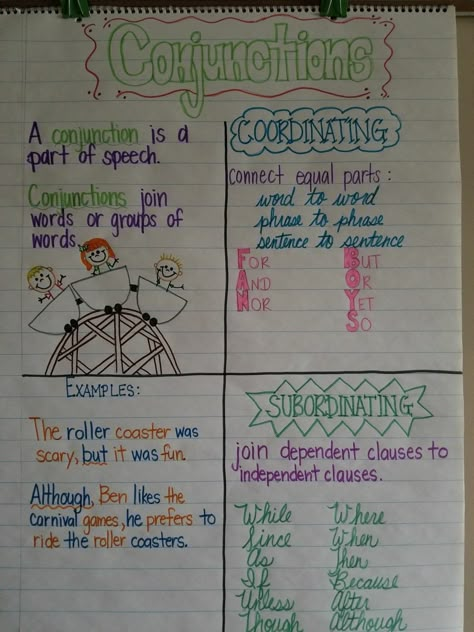 Conjunctions
A conjunction is a
part of speech.
Conjunctions join
words or groups of
words
COORDINATING
Connect equal parts:
word to word
phrase to phrase
sentence to sentence
FOR BUT
AND OR
NOR YET
SO
EXAMPLES:
The roller coaster was
scary, but it was fun.
Although, Ben likes the
carnival games, he prefers to
ride the roller coasters.
SUBORDINATING
join dependent clauses to
independent clauses.
While Where
Since When
As Then
If Because
Unless After
Though Although